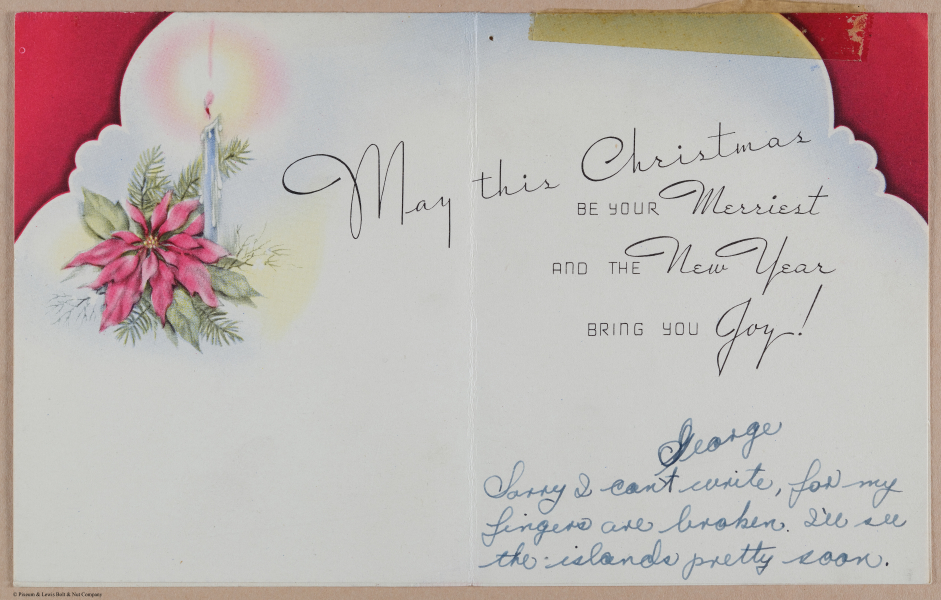 May this Christmas
BE YOUR Merriest
AND THE New Year
BRING YOU Joy!
George
Sorry I can't write, for my
fingers are broken. I'll see
the islands pretty soon.
© Pearson & Lewis Bolt & Nut Company